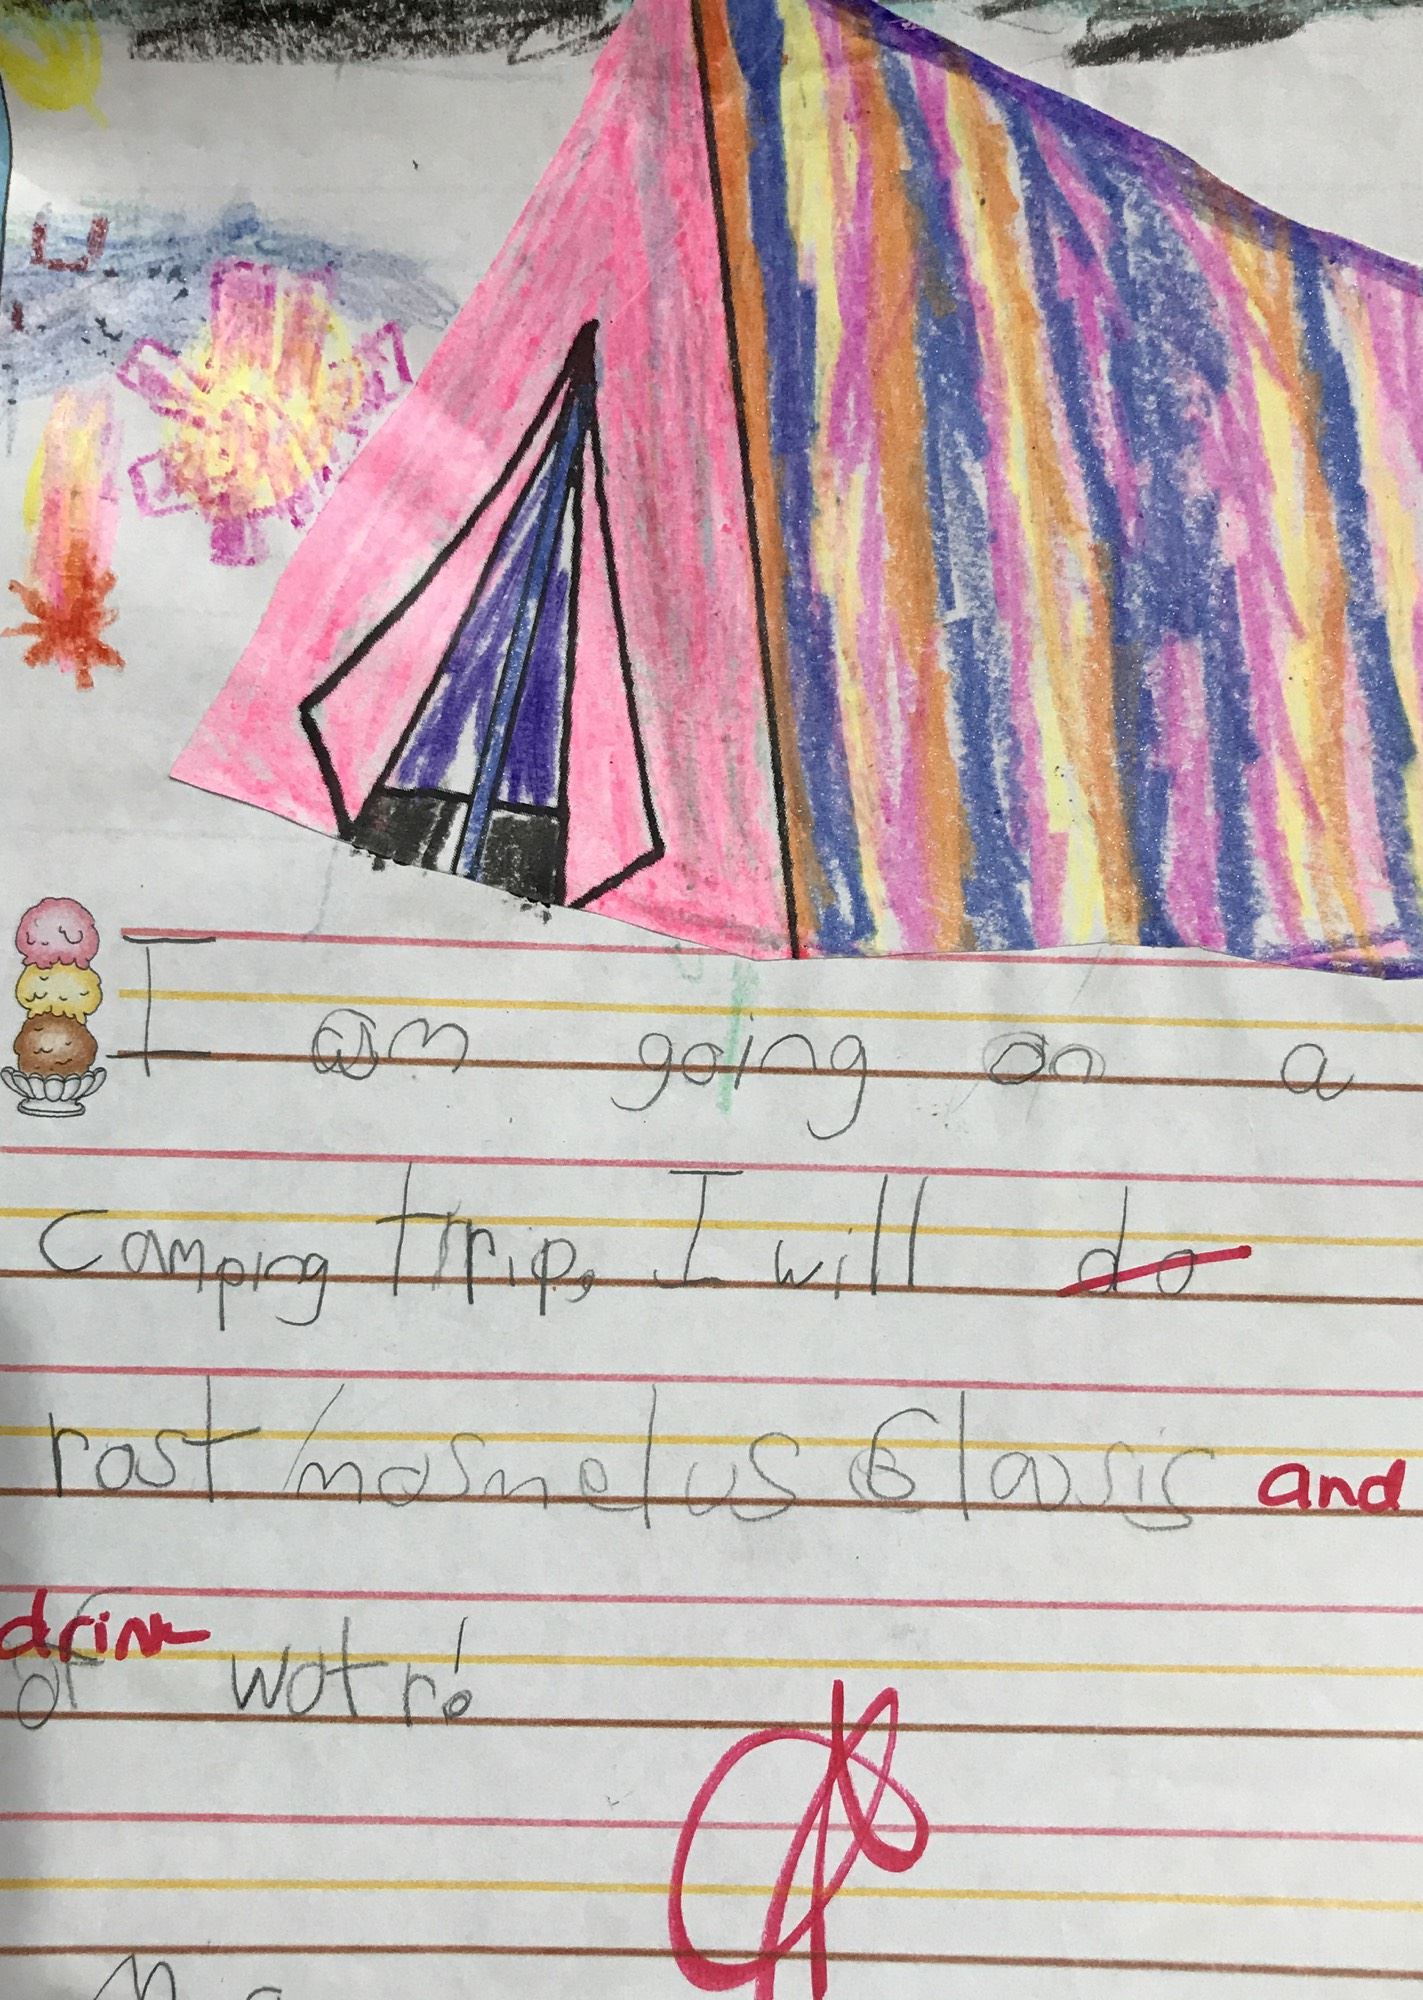 I am going on a
camping trip, I will do
rost mosmelus Glasis and
drink
of watr!